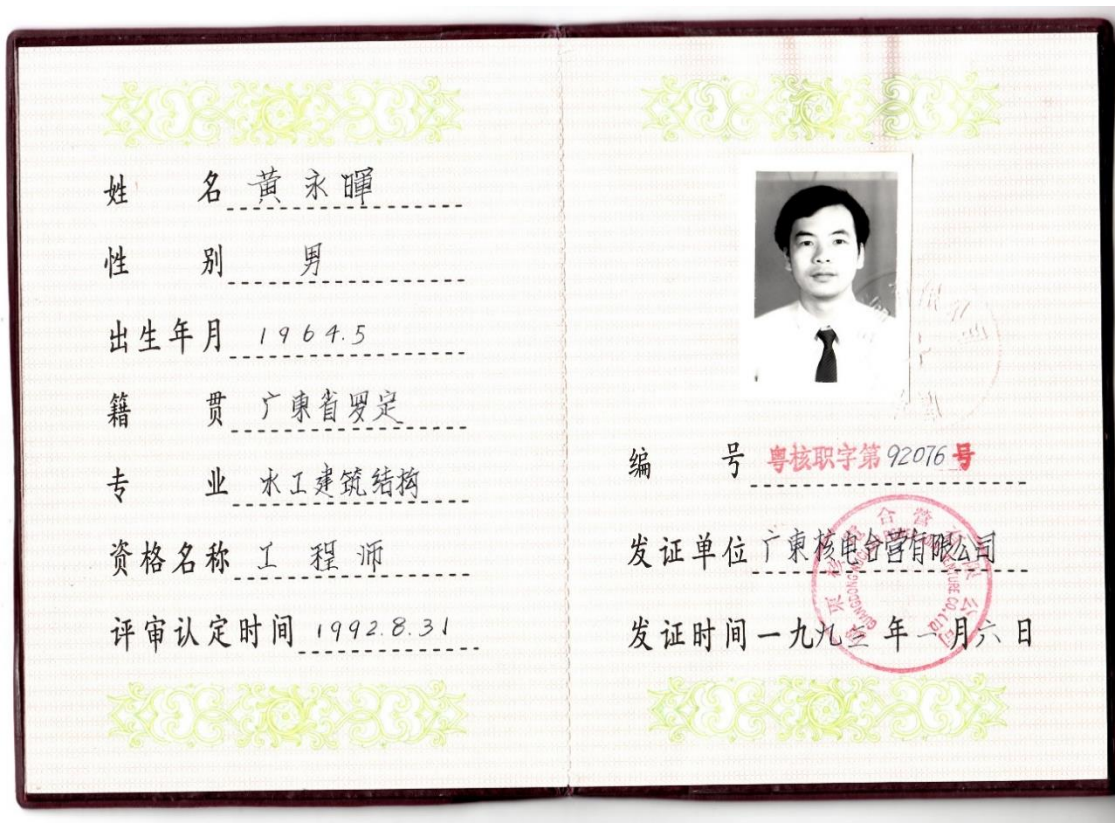 姓 名 黄永暉
性 别 男
出生年月 1964.5
籍 贯 广東省罗定
专 业 水工建筑结构
资格名称 工程师
评审认定时间 1992.8.31
编 号 粤核职字第 92076 号
发证单位 广東核电合营有限公司
发证时间 一九九三年一月六日